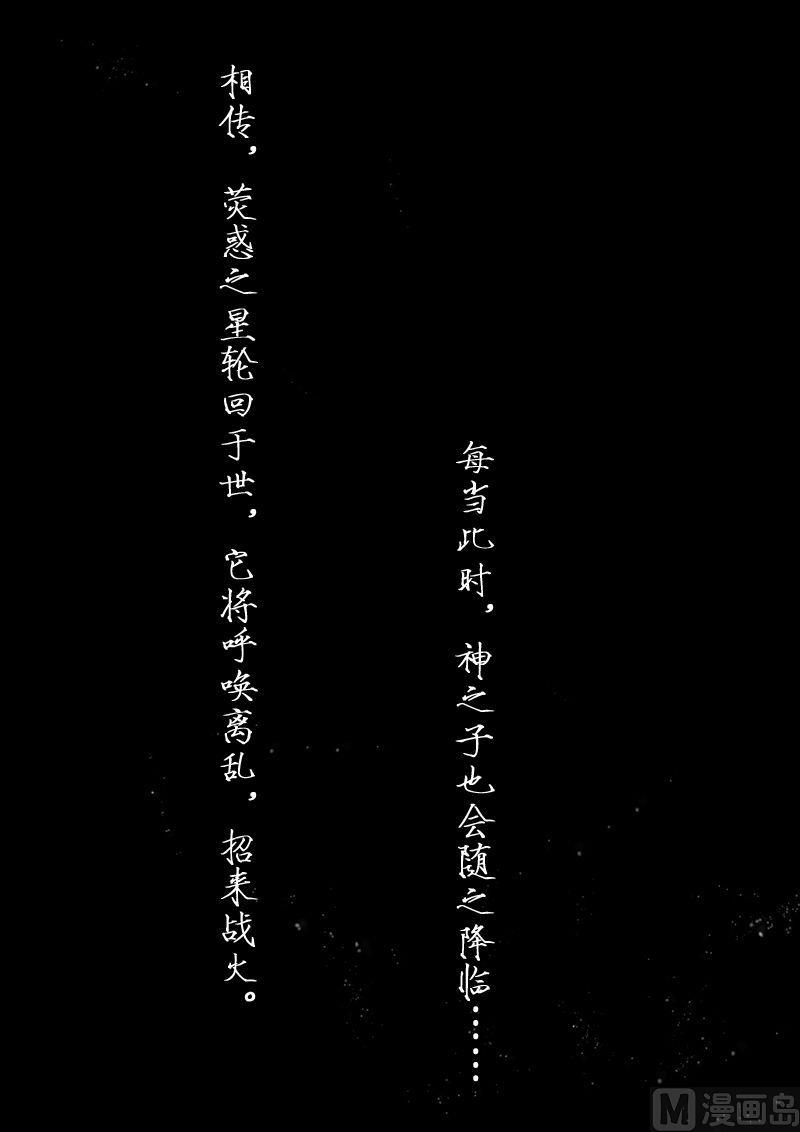 相传，荧惑之星轮回于世，它将呼唤离乱，招来战火。
每当此时，神之子也会随之降临……
M漫画岛